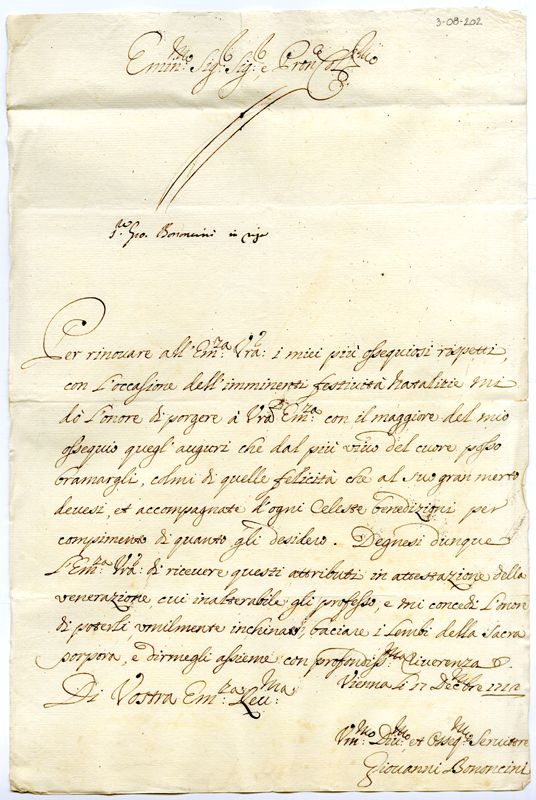 3-08-202
Emin:mo Sig.r Sig.r e Pron Col:mo
Gio. Bononcini in
Per rinovare all'Em:za Vra: i miei più ossequiosi rispetti,
con l'occasione dell'imminenti festività Natalitie mi
dò l'onore di porgere à Vra Em:za con il maggiore del mio
ossequio quegl'auguri che dal più vivo del cuore posso
bramargli, colmi di quelle felicità che al suo gran merto
devesi, et accompagnate d'ogni Celeste benedizioni per
compimento di quanto gli desidero. Degnesi dunque
l'Em:za Vra: di ricevere questi attributi in attestazione della
venerazione, cui inalterabile gli professo, e mi concedi l'onore
di poterli, umilmente inchinato, baciare i Lembi della Sacra
porpora, e dirmegli assieme con profondiss:ma Riverenza
Di Vostra Em:za Rev:ma
Vienna li 17 Decbre
Um:mo Div:mo et Osseq:mo Servitore
Giovanni Bononcini